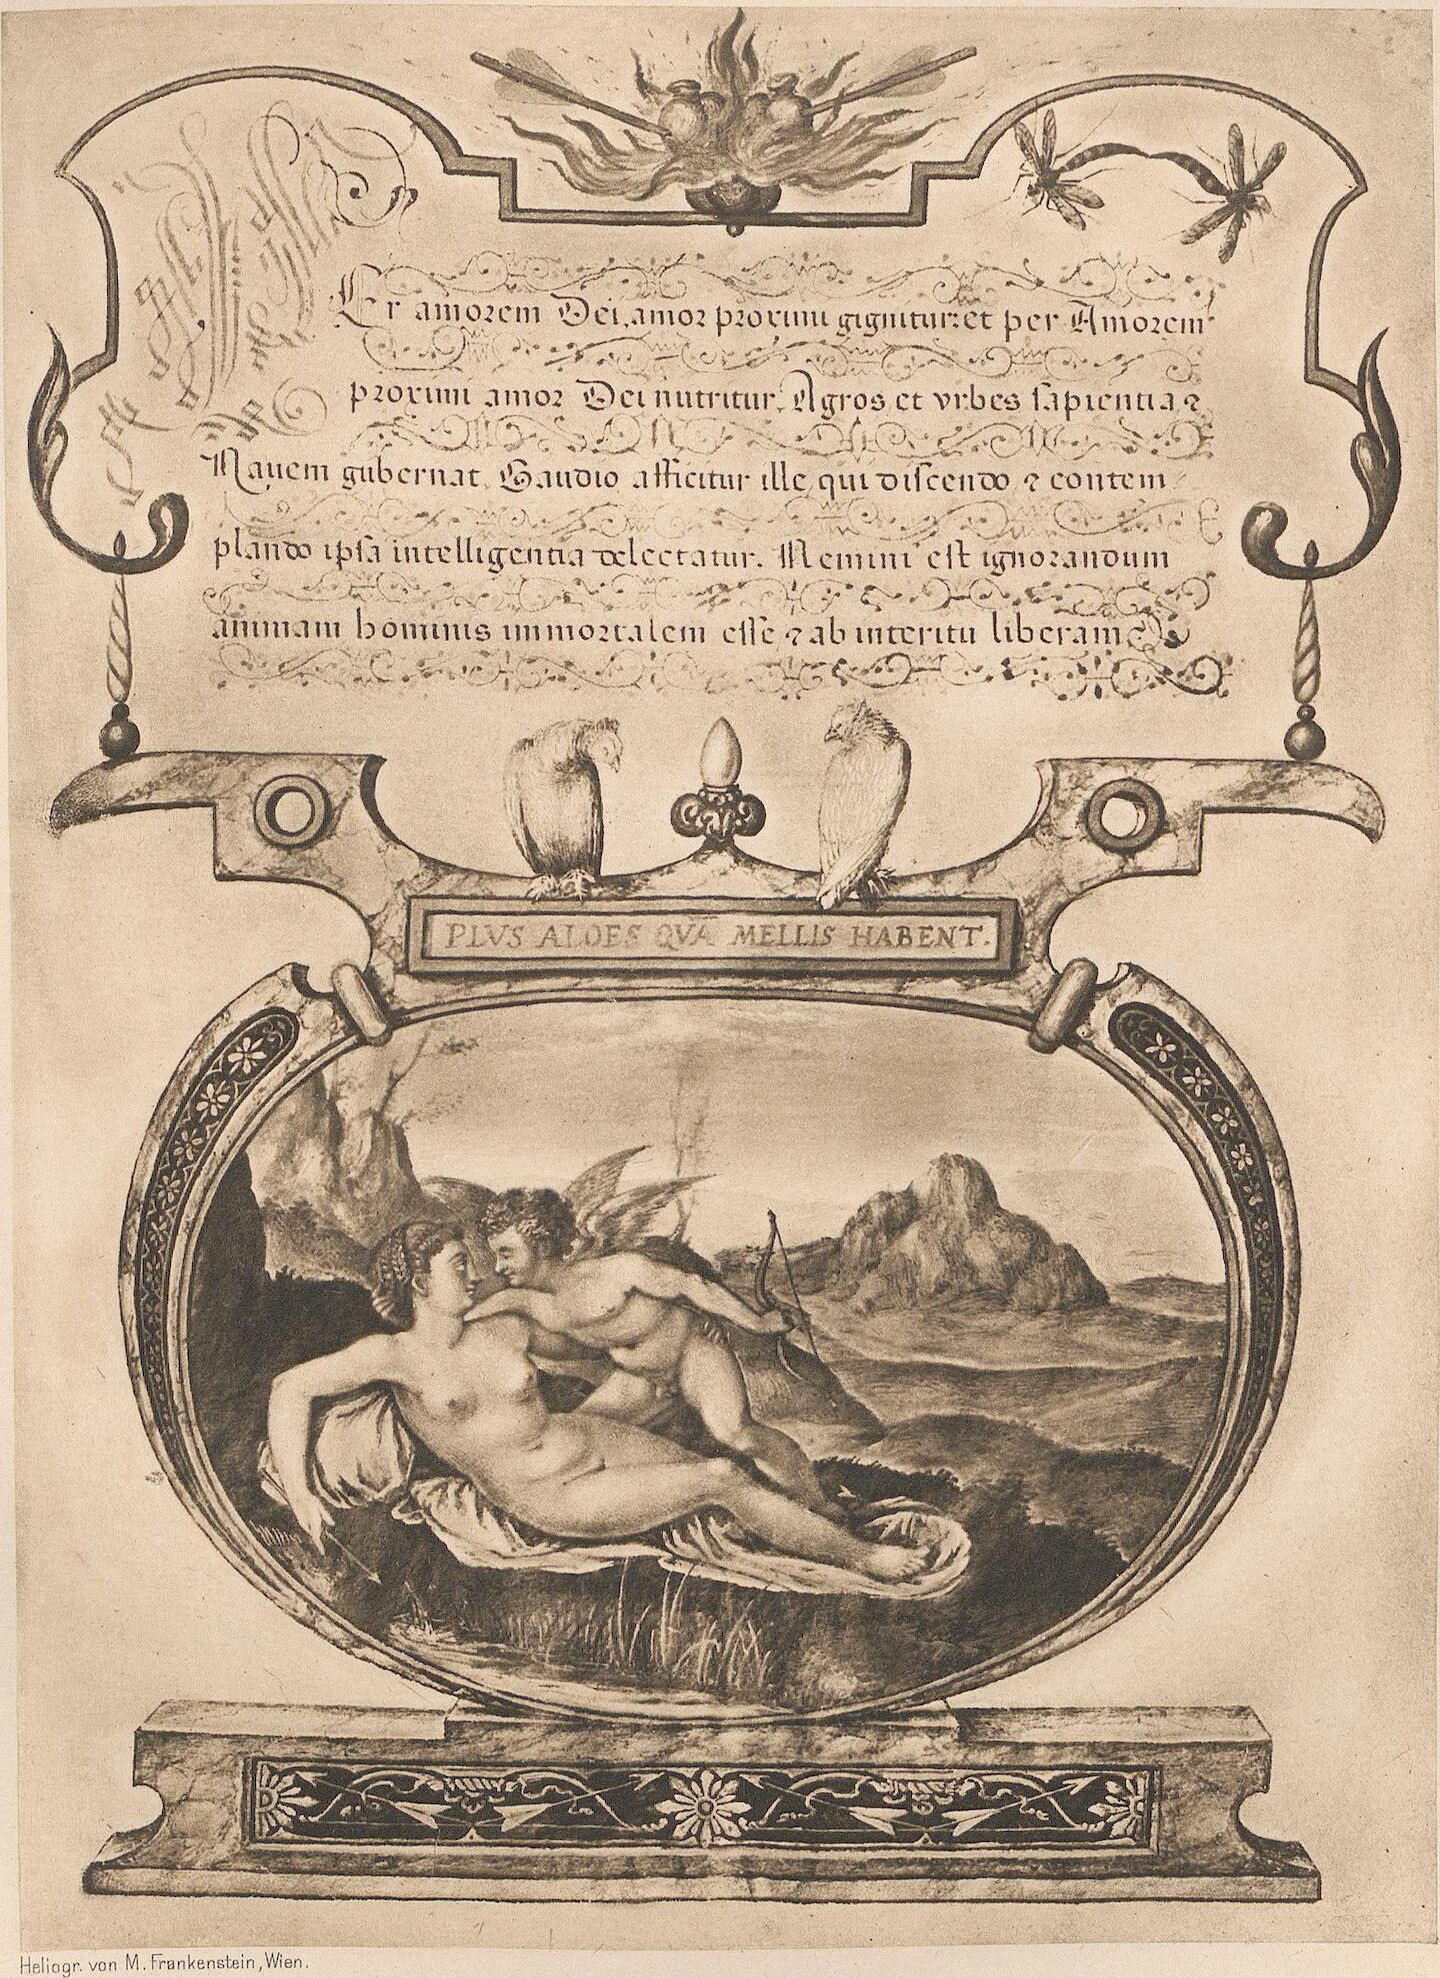 Per amorem Dei, amor proximi gignitur: et per Amorem
proximi amor Dei nutritur. Agros et vrbes sapientia ⁊
Nauem gubernat. Gaudio afficitur ille, qui discendo ⁊ contem
plando ipsa intelligentia delectatur. Nemini est ignorandum
animam hominis immortalem esse ⁊ ab interitu liberam
PLVS ALOES QVĀ MELLIS HABENT.
Heliogr. von M. Frankenstein, Wien.